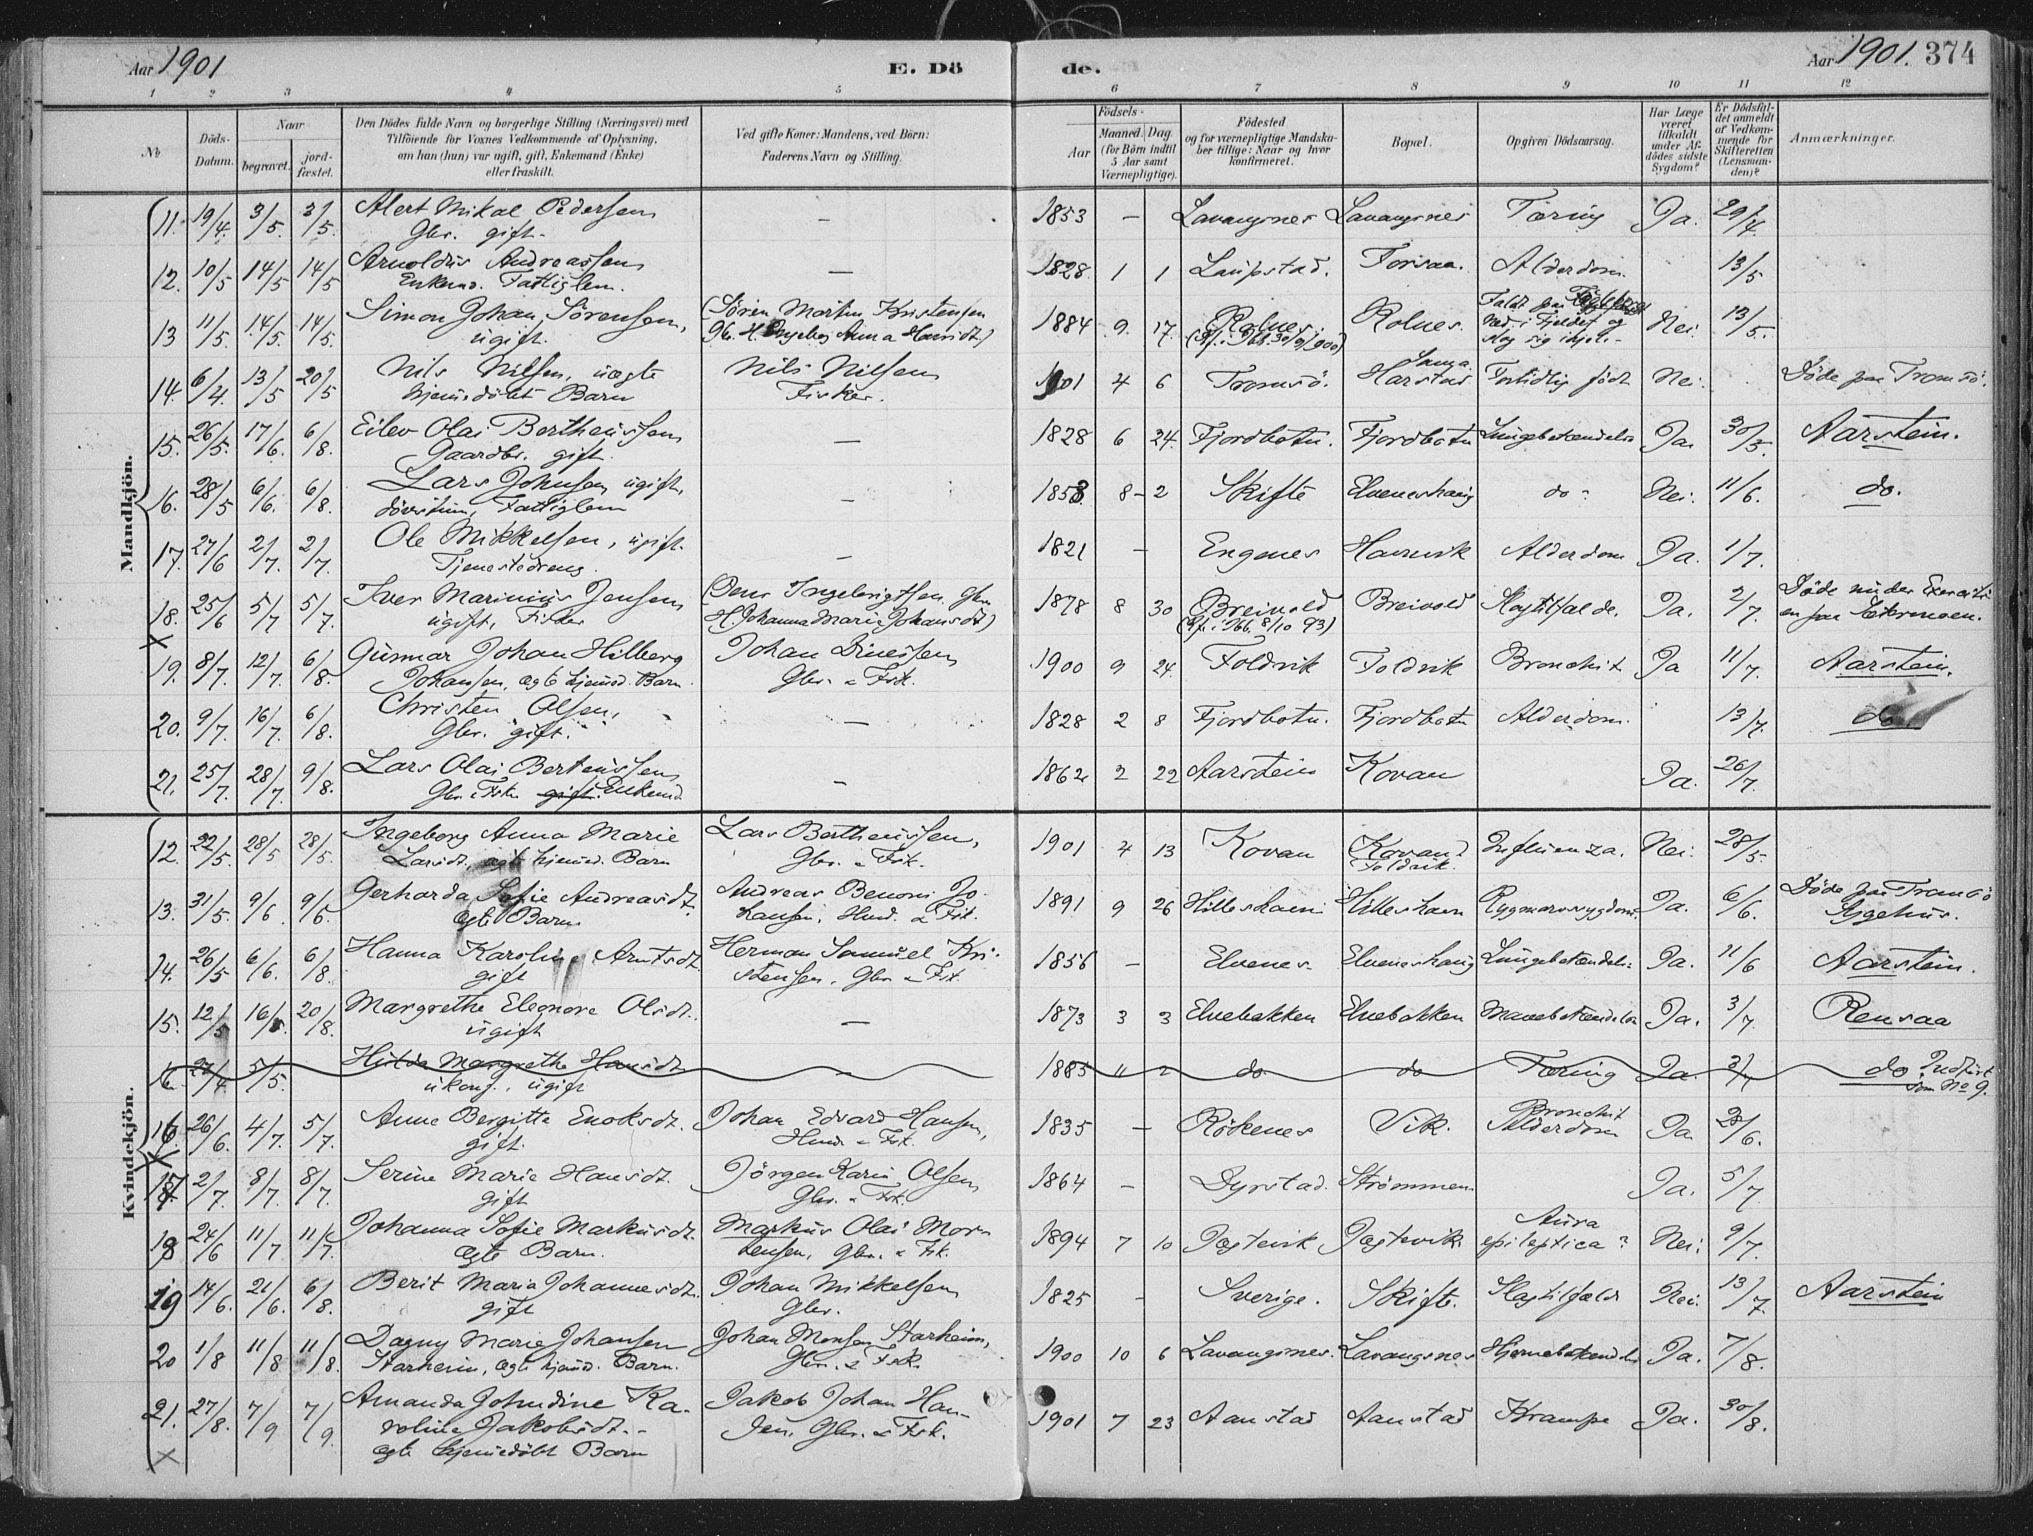 Aar 1901
E. Dö
de.
Aar 1901. 374
1 2 3 4 5 6 7 8 9 10 11 12
№
Döds-Datum.
Naar
begravet.
jord-fæstet.
Den Dödes fulde Navn og borgerlige Stilling (Næringsvei) med
Tilföiende for Voxnes Vedkommende af Oplysning,
om han (hun) var ugift, gift, Enkemand (Enke)
eller fraskilt.
Ved gifte Koner: Mandens, ved Börn:
Faderens Navn og Stilling.
Födsels-
Aar
Maaned. Dag.
(for Börn indtil
5 Aar samt
Værnepligtige).
Födested
og for værnepligtige Mandska-
ber tillige: Naar og hvor
konfirmeret.
Bopæl.
Opgiven Dödsaarsag.
Har Læge
været
tilkaldt
under Af-
dödes sidste
Sygdom?
Er Dödsfal-
det anmeldt
af Vedkom-
mende for
Skifteretten
(Lensman-
den)?
Anmærkninger.
Mandkjön.
11. 19/4. 3/5. 3/5. Alert Mikal Pedersen — 1853 — Lavangsnes Lavangsnes Tæring Ja. 29/4.
Gbr. gift.
12. 10/5 14/5 14/5 Arnoldus Andreassen — 1828. 1 1 Laupstad. Forsaa. Alderdom. 13/5
Enkemd. Fattiglem.
13 11/5. 14/5. 14/5. Simon Johan Sörensen, (Sören Martin Kristensen 1884 9. 17. Rolnes. Rolnes. Faldt paa
ugift. Gb. H. Ingeborg Anna Hansdt.) (Kf. i Ibb. 30/9/900) ned i Fjeldet og slog sig ihjel. Nei. 13/5.
14. 6/4. 13/5 20/5 Nils Nilsen, uægte Nils Nilsen 1901 4 6 Tromsö. Harstad Fortidlig födt Nei. Döde paa Tromsö.
hjemdöbt Barn Fisker.
15. 26/5. 17/6 6/8. Eilev Olai Bertheussen — 1828 6 24. Fjordbotn. Fjordbotn Lungebetændelse Ja. 30/5. Aarstein.
Gaardbr. gift.
16. 28/5 6/6. 6/8. Lars Johnsen ugift, — 1853. 8 - 2 Skifte Elveneshaug do Nei. 11/6. do.
dövstum, Fattiglem
17. 27/6 2/7. 2/7. Ole Mikkelsen, ugift. — 1821 — Engenes Havnvik Alderdom Ja. 1/7.
Tjenestedreng.
18. 25/6 5/7 5/7. Iver Marinius Jensen (Jens Ingebrigtsen Gbr. 1878 8 30 Breivold Breivold Slagtilfælde. Ja. 2/7. Döde under Exerciti-
ugift, Fisker H. Johanna Marie Johansdt.) (Kf. i Ibb. 8/10 93) en paa Sætermoen.
19. 8/7. 12/7. 6/8. Gunnar Johan Hilberg Johan Dinessen 1900 9 24. Foldvik Foldvik Bronchit Ja 11/7. Aarstein.
Johansen, ægte hjemd. Barn Gbr. & Fsk.
20. 9/7. 16/7. 6/8. Christen Olsen, — 1828 2 8 Fjordbotn. Fjordbotn Alderdom. 13/7. do.
Gbr. gift.
21. 25/7. 28/7. 9/8. Lars Olai Berteussen — 1862 2 22 Aarstein Kovan Ja. 26/7.
Gbr. & Fsk. gift. Enkemd.
Kvindekjön.
12. 22/5. 28/5 28/5. Ingeborg Anna Marie Lars Bertheussen, 1901 4 13 Kovan Kovan Influenza. Nei. 28/5.
Larsdt. ægte hjemd. Barn Gbr. & Fsk. Foldvik.
13. 31/5. 9/6. 9/6. Gerharda Sofie Andreasdt. Andreas Benoni Jo- 1891 9 26 Hilleshavn Hilleshavn Rygmarvssygdom. Ja. 6/6. Döde paa Tromsö
ægte Barn hansen, Hmd. & Fsk. Sygehus.
14. 26/5 6/6. 6/8. Hanna Karoline Arntsdt. Herman Samuel Kri- 1856 — Elvenes Elveneshaug Lungebetændels: Ja. 11/6 Aarstein.
gift stensen, Gbr. & Fsk.
15. 12/5 16/5. 20/8. Margrethe Eleonore Olsdt. — 1873 3 3 Elvebakken Elvebakken Mavebetændelse Ja. 3/7. Rensaa
ugift
16 5/5. Hilda Margrethe Hansdt — 1885 11 2 do do Tæring Ja. do Indfört
ukonf., ugift som No 9.
16. 26/6. 4/7. 5/7. Anne Bergitte Enoksdt. Johan Edvard Hansen, 1835 — Rökenes Vik. Bronchit Alderdom Ja. 28/6.
gift. Hmd. & Fsk.
17 2/7. 8/7. 8/7. Serine Marie Hansdt. Jörgen Olsen 1864 — Dyrstad. Strömmen Ja. 5/7.
gift Gbr. & Fsk.
18 24/6 11/7. 11/7. Johanna Sofie Markusdt. Markus Olai Mor- 1894 7 10 Jægtevik Jægtevik Aura epileptica? Nei. 9/7.
ægte Barn. tensen, Gbr. & Fsk.
19 14/6. 21/6. 6/8. Berit Maria Johannesdt. Johan Mikkelsen 1825 — Sverige. Skifte. Slagtilfæld Nei. 13/7. Aarstein
gift Gbr.
20 1/8 11/8 11/8. Dagny Marie Johansen Johan Monsen Starheim, 1900 10 6 Lavangsnes Lavangsnes Hjernebetændelse Ja. 7/8.
Starheim, ægte hjemd. Barn. Gbr. & Fsk.
21. 27/8. 7/9 7/9. Amanda Johndine Ka- Jakob Johan Han- 1901 7 23 Aanstad Aanstad Krampe Ja. 30/8.
roline Jakobsdt. sen, Gbr. & Fsk.
ægte hjemmedöbt Barn